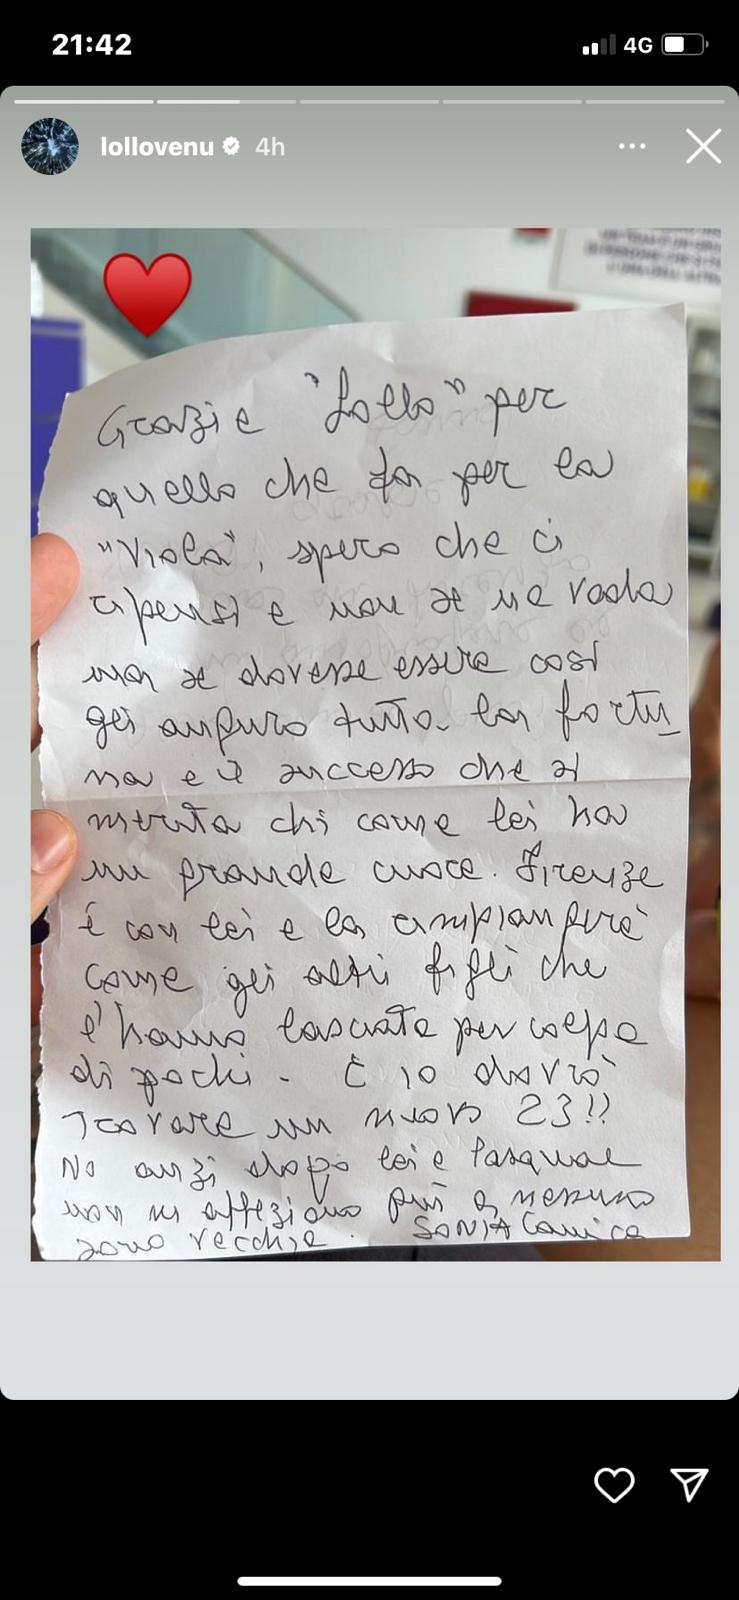 21:42
4G
lollovenu 4h
Grazie "Lollo" per
quello che fa per la
"Viola", spero che ci
ripensi e non se ne vada
ma se dovesse essere così
gli auguro tutto. la fortu_
na e il successo che si
merita chi come lei ha
un grande cuore. Firenze
è con lei e la rimpiangerà
come gli altri figli che
l'hanno lasciata per colpa
di pochi. E io dovrò
trovare un nuovo 23!!
No anzi dopo lei e Pasqual
non mi affeziono più a nessuno
sono vecchia. SONIA